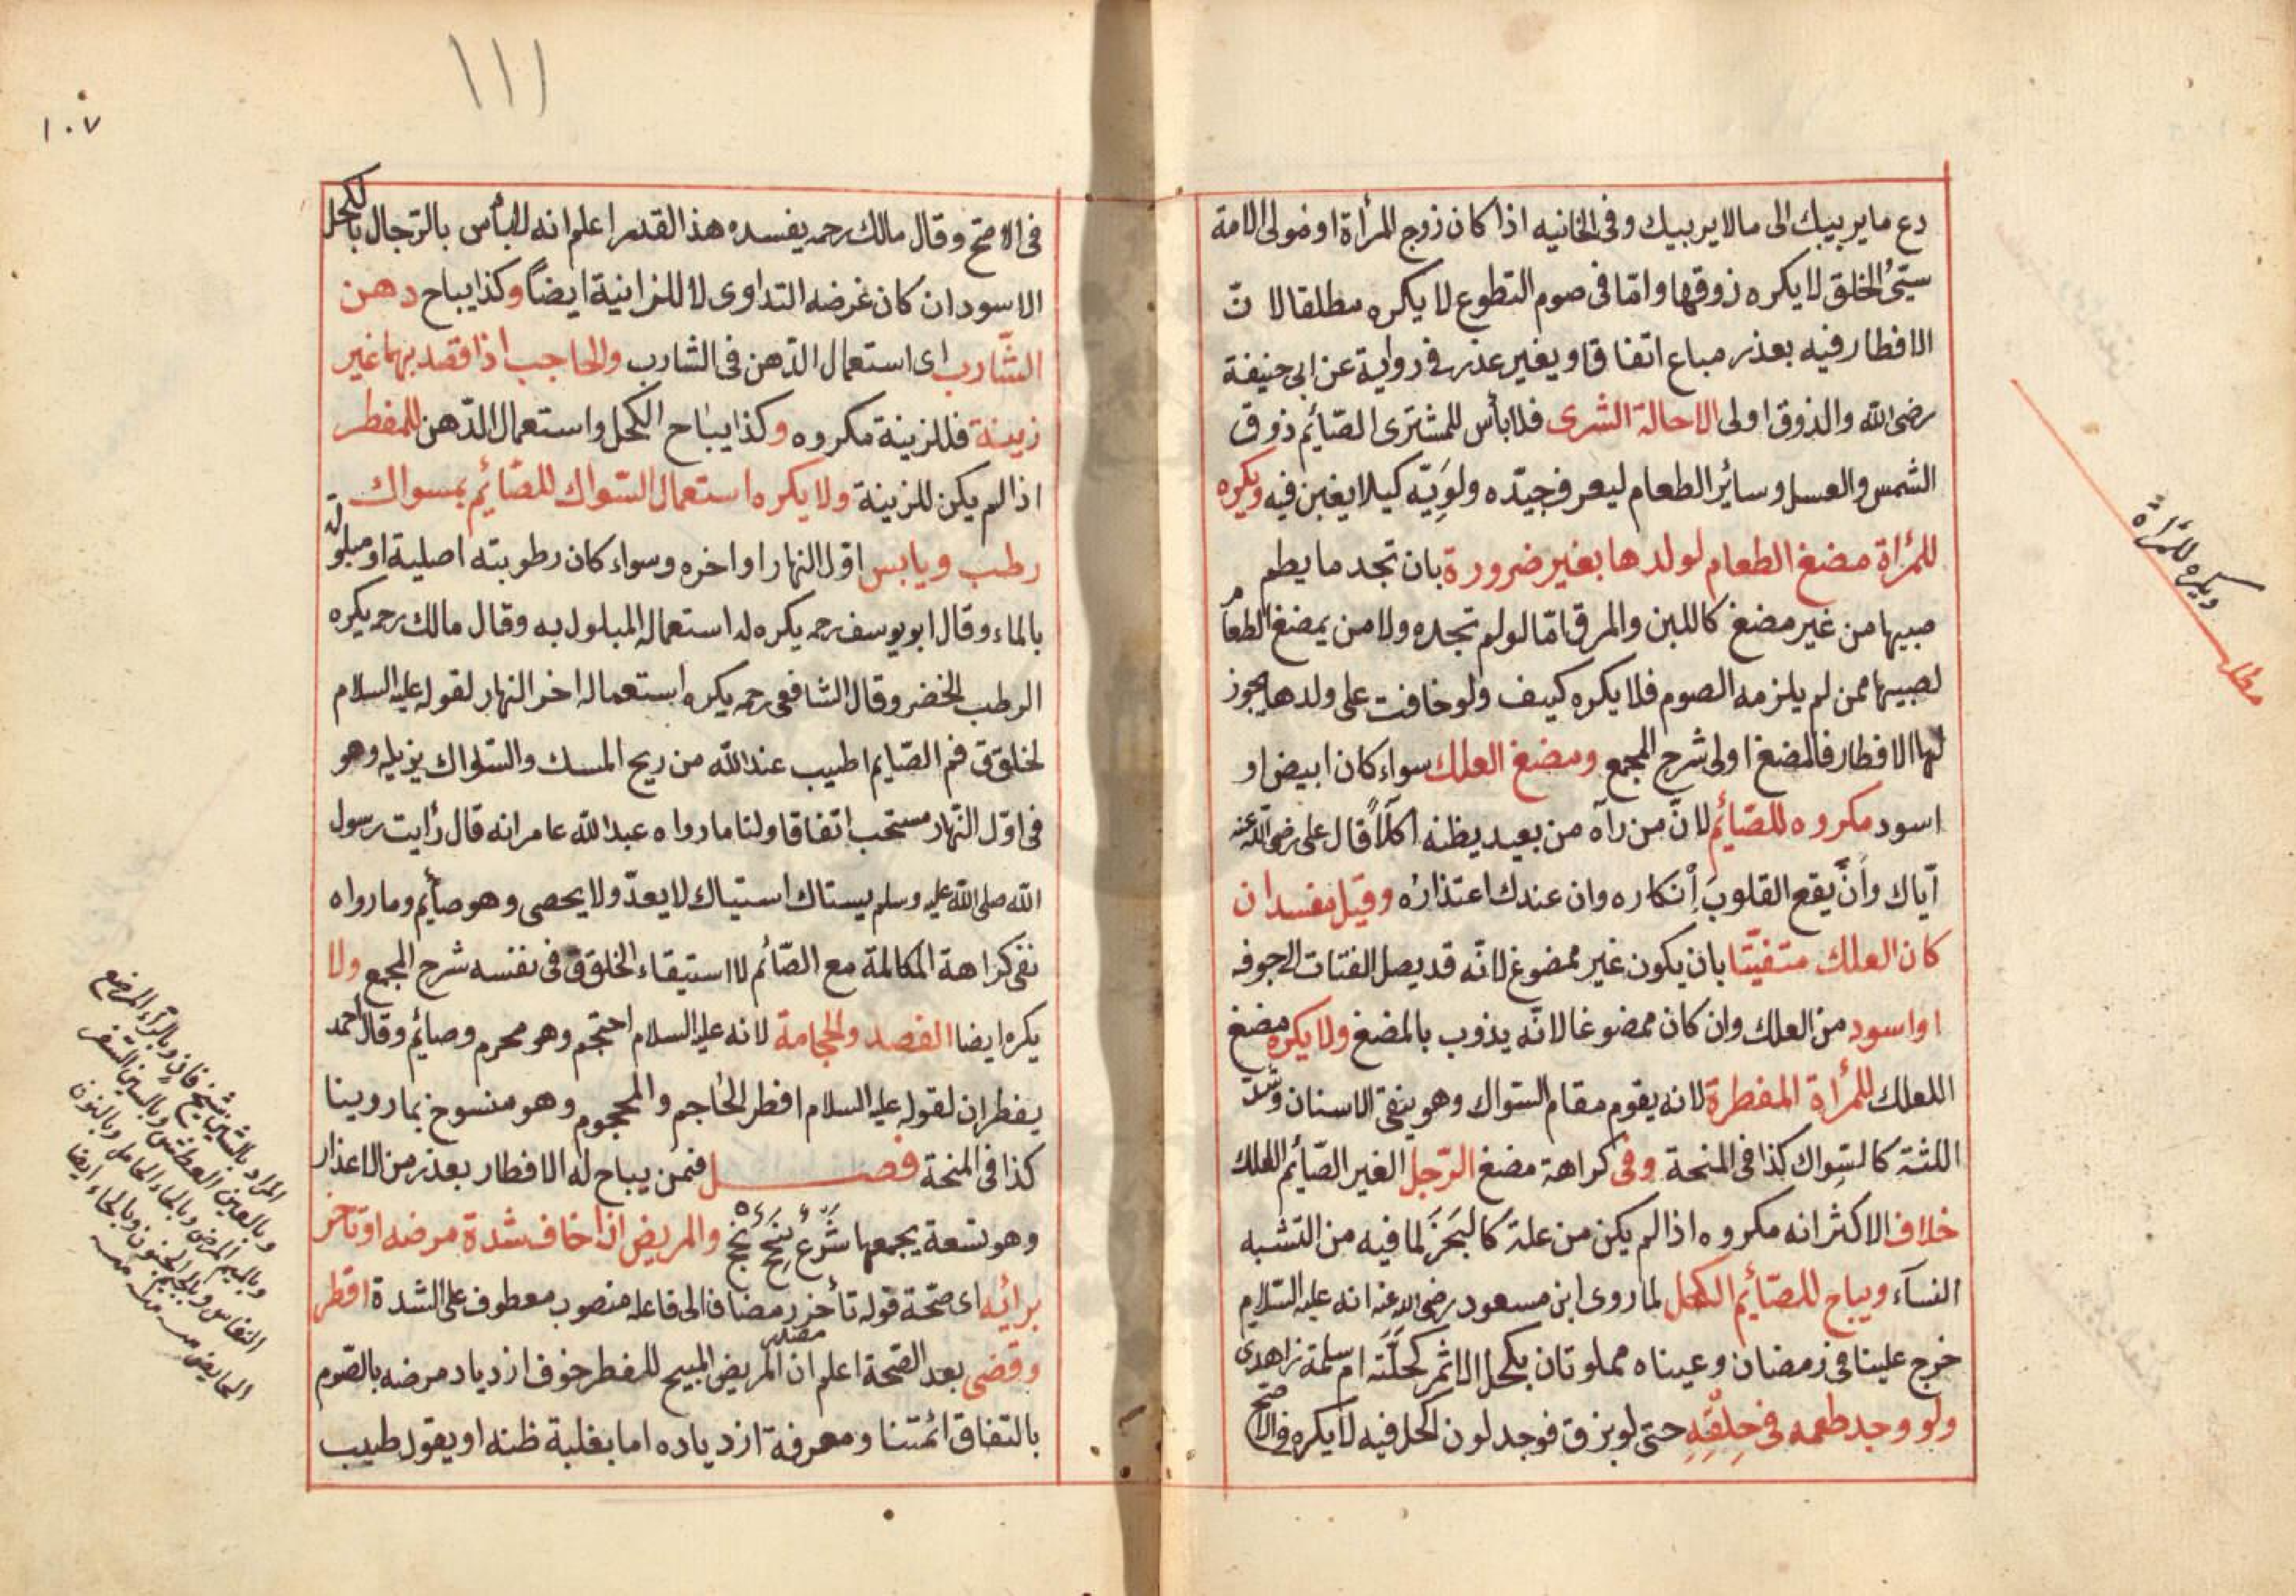 دع ما يريبك الى ما لا يريبك وفى الخانيه اذا كان زوج المرأة او مولى الامة
سيّئ الخلق لا يكره ذوقها وامّا فى صوم التطوع لا يكره مطلقا لانّ
الافطار فيه بعذر مباع اتفاقا وبغير عذر فى رواية عن ابى حنيفة
رضى الله والذوق اولى الا حالة الشرى فلا بأس للمشترى الصّائم ذوق
الشمس والعسل وسائر الطعام ليعرف جيّده ورديّه كيلا يغبن فيه ويكره
للمرأة مضغ الطعام لولدها بغير ضرورة بان تجد ما يطم
صبيها من غير مضغ كاللبن والمرق امّا لو لم تجده ولا من يمضغ الطعام
لصبيها ممن لم يلزمه الصوم فلا يكره كيف ولو خافت على ولدها يجوز
لها الافطار فالمضغ اولى شرح المجمع ومضغ العلك سواء كان ابيض او
اسود مكروه للصّائم لانّ من رآه من بعيد يظنه اكلاً قال على رضى الله عنه
ايّاك وانّ يقع القلوب انكاره وان عندك اعتذاره وقيل يفسد ان
كان العلك متفتّتا بان يكون غير ممضوغ لانّه قد يصل الفتات الى جوفه
او اسود من العلك وان كان ممضوغا لانّه يذوب بالمضغ ولا يكره مضغ
اللعلك للمرأة المفطرة لانه يقوم مقام السّواك وهو ينقى الاسنان وشدّ
اللثة كالسّواك كذا فى المنحة وفى كراهة مضغ الرّجل الغير الصّائم العلك
خلاف الاكثر انه مكروه اذا لم يكن من علة كالبَخَر لما فيه من التشبه
النسآء ويباح للصّائم الكحل لما روى ابن مسعود رضى الله عنه انه عليه السّلام
خرج علينا فى رمضان وعيناه مملوتان بكحل الاثمر كحلته ام سلمة زاهدى
ولو وجد طعمه فى حلقه حتى لو بزق فوجد لون الكحل فيه لا يكره فى الاصح
ويكره للمرأة
مطلب
١١١
١٠٧
فى الاصح وقال مالك رحمه يفسده هذا القدر اعلم انه لا بأس بالرّجال بالكحل
الاسود ان كان غرضه التداوى لا للزاينية ايضاً وكذا يباح دهن
الشّارب اى استعمال الدّهن فى الشارب والحاجب اذا قصد بهما غير
زينة فللزينة مكروه وكذا يباح الكحل واستعمال الدّهن للمفطر
اذا لم يكن للزينة ولا يكره استعمال السّواك للصّائم بمسواك
رطب ويابس اوّل النهار او اخره وسواء كان رطوبته اصلية او مبلولة
بالماء وقال ابو يوسف رحمه يكره له استعماله المبلول به وقال مالك رحمه يكره
الرطب الخضر وقال الشافعى رحمه يكره استعماله اخر النهار لقوله عليه السلام
لخلوق فم الصّايم اطيب عند الله من ريح المسك والسّواك يزيله وهو
فى اوّل النّهار مستحب اتفاقا ولنا ما رواه عبد الله عامر انه قال رأيت رسول
الله صلى الله عليه وسلم يستاك استياك لا يعدّ ولا يحصى وهو صائم وما رواه
نفى كراهة المكالمة مع الصّائم لا استيقاء الخلوق فى نفسه شرح المجمع ولا
يكره ايضا الفصد والحجامة لانه عليه السلام احتجم وهو محرم وصائم وقال احمد
يفطران لقوله عليه السلام افطر الحاجم والمحجوم وهو منسوخ بما روينا
كذا فى المنحة فصل فمن يباح له الافطار بعذر من الاعذار
وهو تسعة يجمعها والمريض اذا خاف شدة مرضه او تأخر
برائه اى صحّة قوله تأخر مضاف الى فاعله منصوب معطوف على الشدة افطر
وقضى بعد الصّحة اعلم ان المريض المبيح للفطر خوف ازدياد مرضه بالصّوم
بالتفاق ائمتنا ومعرفة ازدياده اما بغلبة ظنه او يقول طبيب
المراد بالشّين شيخ فان وبالرّاء المرضع
وبالعين العطش وبالسين السّفر
وبالميم المرض وبالحاء الحامل وبالنون
النفاس وبالجيم الجنون وبالحاء ايضا
الحايض